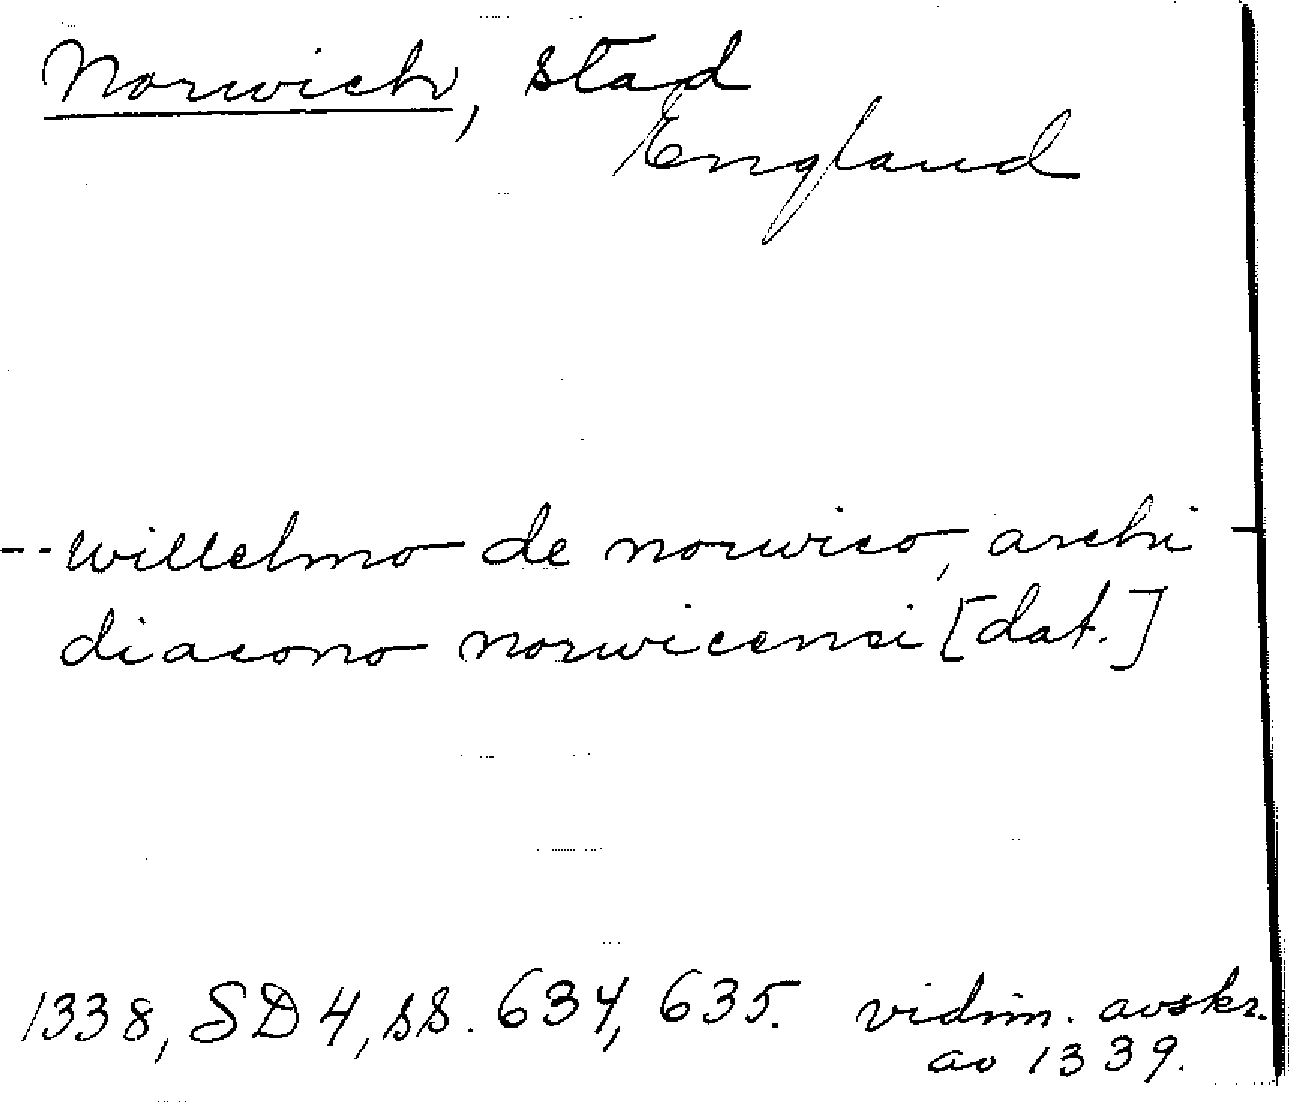 Norwich, stad
England
-- willelmo de norwico, archi-
diacono norwicensi [dat.]
1338, SD 4, ss. 634, 635. vidim. avskr.
av 1339.